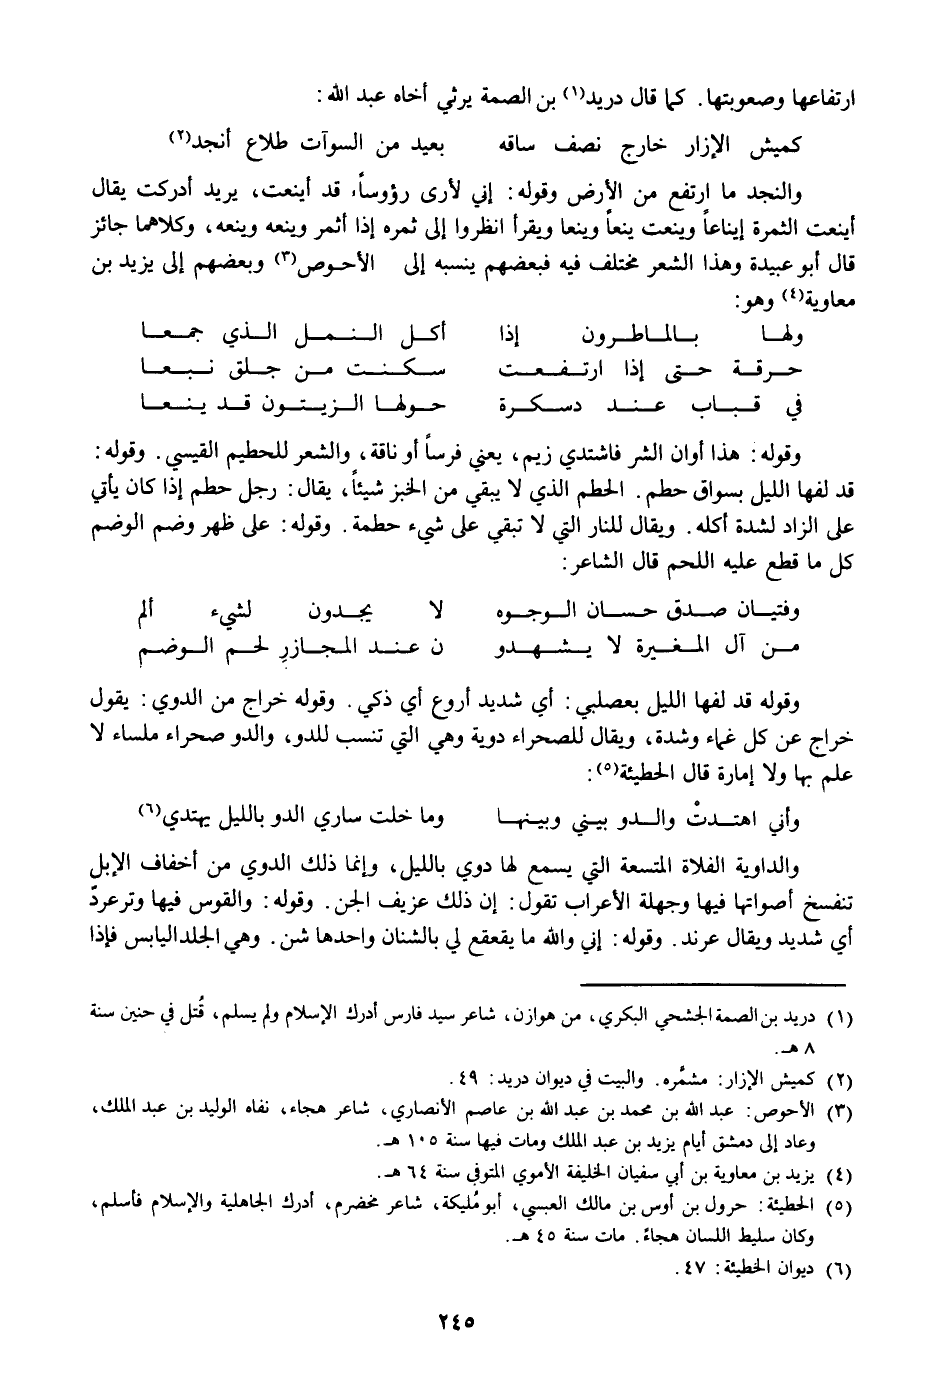 ارتفاعها وصعوبتها. كما قال دريد(١) بن الصمة يرثي أخاه عبد الله:
كميش الإزار خارج نصف ساقه بعيد من السوآت طلاع أنجد(٢)
والنجد ما ارتفع من الأرض وقوله: إني لأرى رؤوساً، قد أينعت، يريد أدركت يقال
أينعت الثمرة إيناعاً وينعت ينعاً وينعا ويقرأ انظروا إلى ثمره إذا أثمر وينعه وينعه، وكلاهما جائز
قال أبو عبيدة وهذا الشعر مختلف فيه فبعضهم ينسبه إلى الأحوص(٣) وبعضهم إلى يزيد بن
معاوية(٤) وهو:
ولها بالماطرون إذا أكل النمل الذي جمعا
حرقة حتى إذا ارتفعت سكنت من جلق نبعا
في قباب عند دسكرة حولها الزيتون قد ينعا
وقوله: هذا أوان الشر فاشتدي زيم، يعني فرساً أو ناقة، والشعر للحطيم القيسي. وقوله:
قد لفها الليل بسواق حطم. الحطم الذي لا يبقي من الخبز شيئاً، يقال: رجل حطم إذا كان يأتي
على الزاد لشدة أكله. ويقال للنار التي لا تبقي على شيء حطمة. وقوله: على ظهر وضم الوضم
كل ما قطع عليه اللحم قال الشاعر:
وفتيان صدق حسان الوجوه لا يجدون لشيء ألم
من آل المغيرة لا يشهدو ن عند المجازرِ لحم الوضم
وقوله قد لفها الليل بعصلبي: أي شديد أروع أي ذكي. وقوله خراج من الدوي: يقول
خراج عن كل غماء وشدة، ويقال للصحراء دوية وهي التي تنسب للدو، والدو صحراء ملساء لا
علم بها ولا إمارة قال الحطيئة(٥):
وأني اهتدتْ والدو بيني وبينها وما خلت ساري الدو بالليل يهتدي(٦)
والداوية الفلاة المتسعة التي يسمع لها دوي بالليل، وإنما ذلك الدوي من أخفاف الإبل
تنفسخ أصواتها فيها وجهلة الأعراب تقول: إن ذلك عزيف الجن. وقوله: والقوس فيها وترعردّ
أي شديد ويقال عرند. وقوله: إني والله ما يقعقع لي بالشنان واحدها شن. وهي الجلد اليابس فإذا
(١) دريد بن الصمة الجشحي البكري، من هوازن، شاعر سيد فارس أدرك الإسلام ولم يسلم، قُتل في حنين سنة
٨ هـ.
(٢) كميش الإزار: مشمَّره. والبيت في ديوان دريد: ٤٩.
(٣) الأحوص: عبد الله بن محمد بن عبد الله بن عاصم الأنصاري، شاعر هجاء، نفاه الوليد بن عبد الملك،
وعاد إلى دمشق أيام يزيد بن عبد الملك ومات فيها سنة ١٠٥ هـ.
(٤) يزيد بن معاوية بن أبي سفيان الخليفة الأموي المتوفى سنة ٦٤ هـ.
(٥) الحطيئة: حرول بن أوس بن مالك العبسي، أبو مُليكة، شاعر مخضرم، أدرك الجاهلية والإسلام فأسلم،
وكان سليط اللسان هجاءً. مات سنة ٤٥ هـ.
(٦) ديوان الحطيئة: ٤٧.
٢٤٥